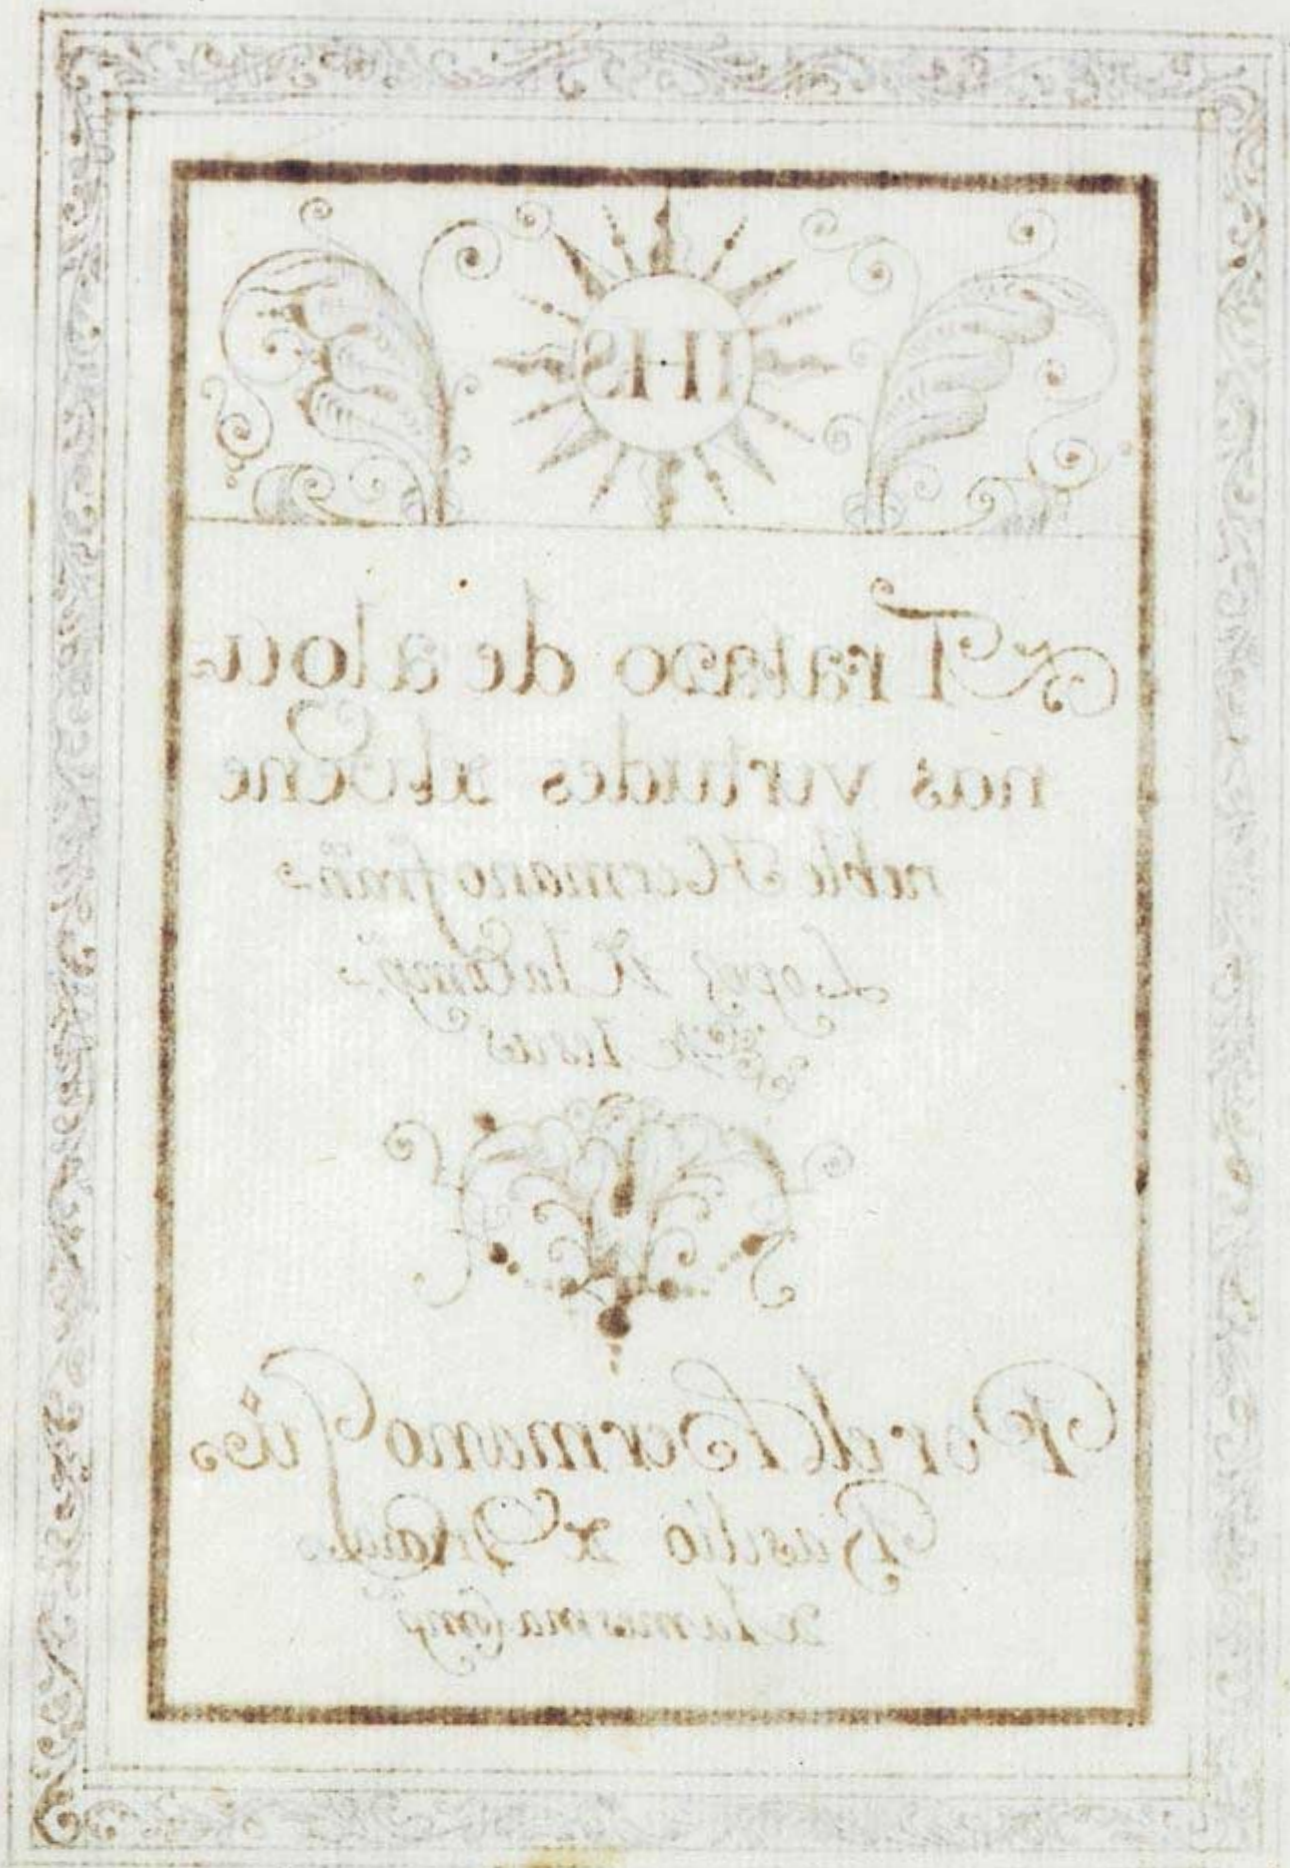 IHS
Tratado de algu-
nas virtudes del Vene
rable Hermano fran.co
Lopez de la Comp.a
de Iesus
Por el Hermano
Basilio de
de la misma Comp.a